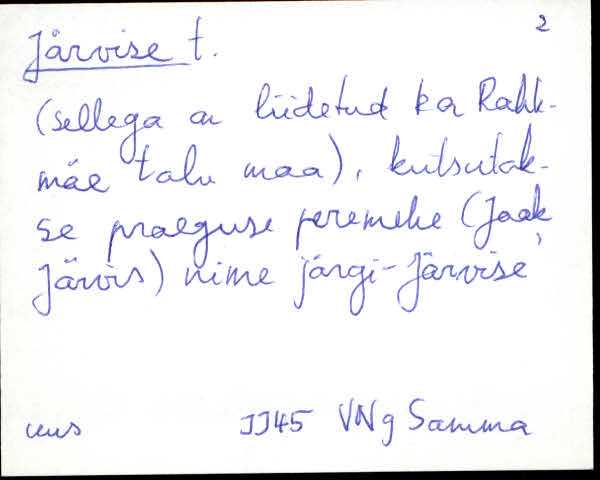 2
Järvise t.
(sellega on liidetud ka Rahk-
mäe talu maa), kutsutak-
se praeguse peremehe (Jaak
Järvis) nime järgi - Järvise'
uus JJ45 VNg Samma